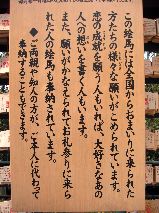 この絵馬には全国からおまいりに来られた
方たちの様々な願いがこめられています。
恋の成就を願う人もいれば、大好きなあの
人への想いを書く人もいます。
また、願いがかなえられてお礼参りに来ら
れた人の絵馬も奉納されています。
◆ご両親や知人の方が、ご本人に代わって
奉納することもできます。